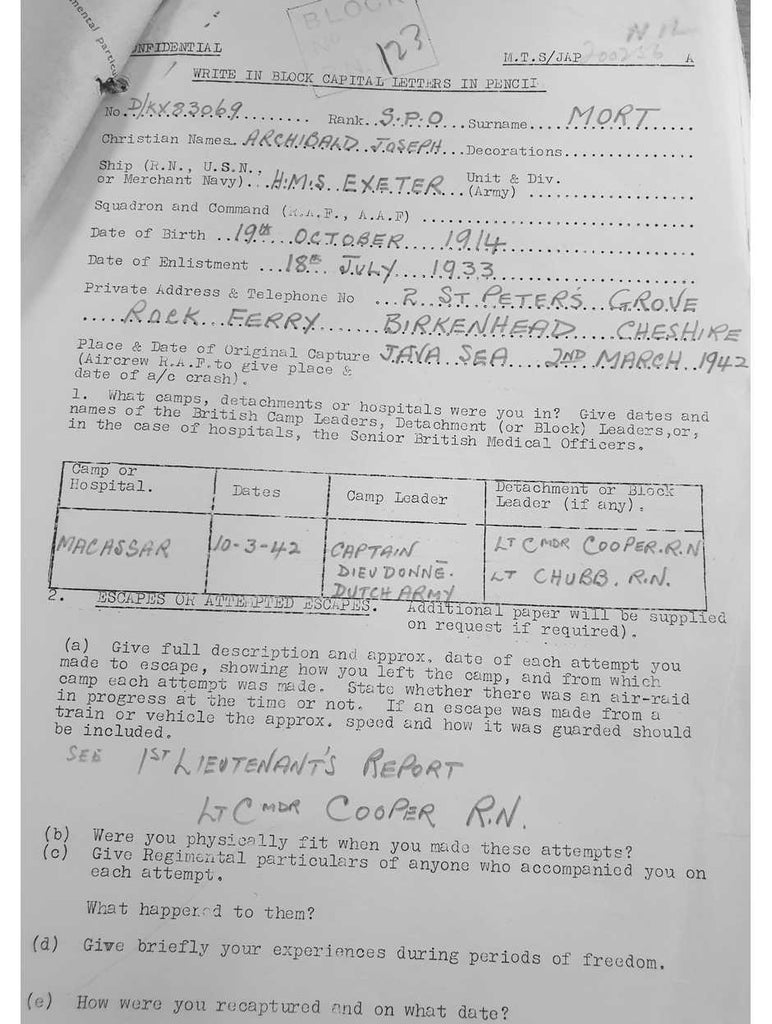 mental partic
BLOCK
No
123
CONFIDENTIAL
M.T.S/JAP 200256 A
WRITE IN BLOCK CAPITAL LETTERS IN PENCIL
No. D/KX83069 Rank. S.P.O Surname MORT
Christian Names. ARCHIBALD JOSEPH Decorations
Ship (R.N., U.S.N., or Merchant Navy) H.M.S EXETER Unit & Div. (Army)
Squadron and Command (R.A.F., A.A.F)
Date of Birth 19th OCTOBER 1914
Date of Enlistment 18th JULY 1933
Private Address & Telephone No 2. ST. PETER'S GROVE
ROCK FERRY BIRKENHEAD CHESHIRE
Place & Date of Original Capture JAVA SEA 2ND MARCH 1942
(Aircrew R.A.F. to give place &
date of a/c crash).
1. What camps, detachments or hospitals were you in? Give dates and
names of the British Camp Leaders, Detachment (or Block) Leaders, or,
in the case of hospitals, the Senior British Medical Officers.
Camp or Hospital. Dates Camp Leader Detachment or Block Leader (if any).
MACASSAR 10-3-42 CAPTAIN LT CMDR COOPER. R.N
DIEUDONNE. LT CHUBB. R.N.
DUTCH ARMY
2. ESCAPES OR ATTEMPTED ESCAPES. Additional paper will be supplied
on request if required).
(a) Give full description and approx. date of each attempt you
made to escape, showing how you left the camp, and from which
camp each attempt was made. State whether there was an air-raid
in progress at the time or not. If an escape was made from a
train or vehicle the approx. speed and how it was guarded should
be included.
SEE 1ST LIEUTENANT'S REPORT
LT CMDR COOPER R.N.
(b) Were you physically fit when you made these attempts?
(c) Give Regimental particulars of anyone who accompanied you on
each attempt.
What happened to them?
(d) Give briefly your experiences during periods of freedom.
(e) How were you recaptured and on what date?